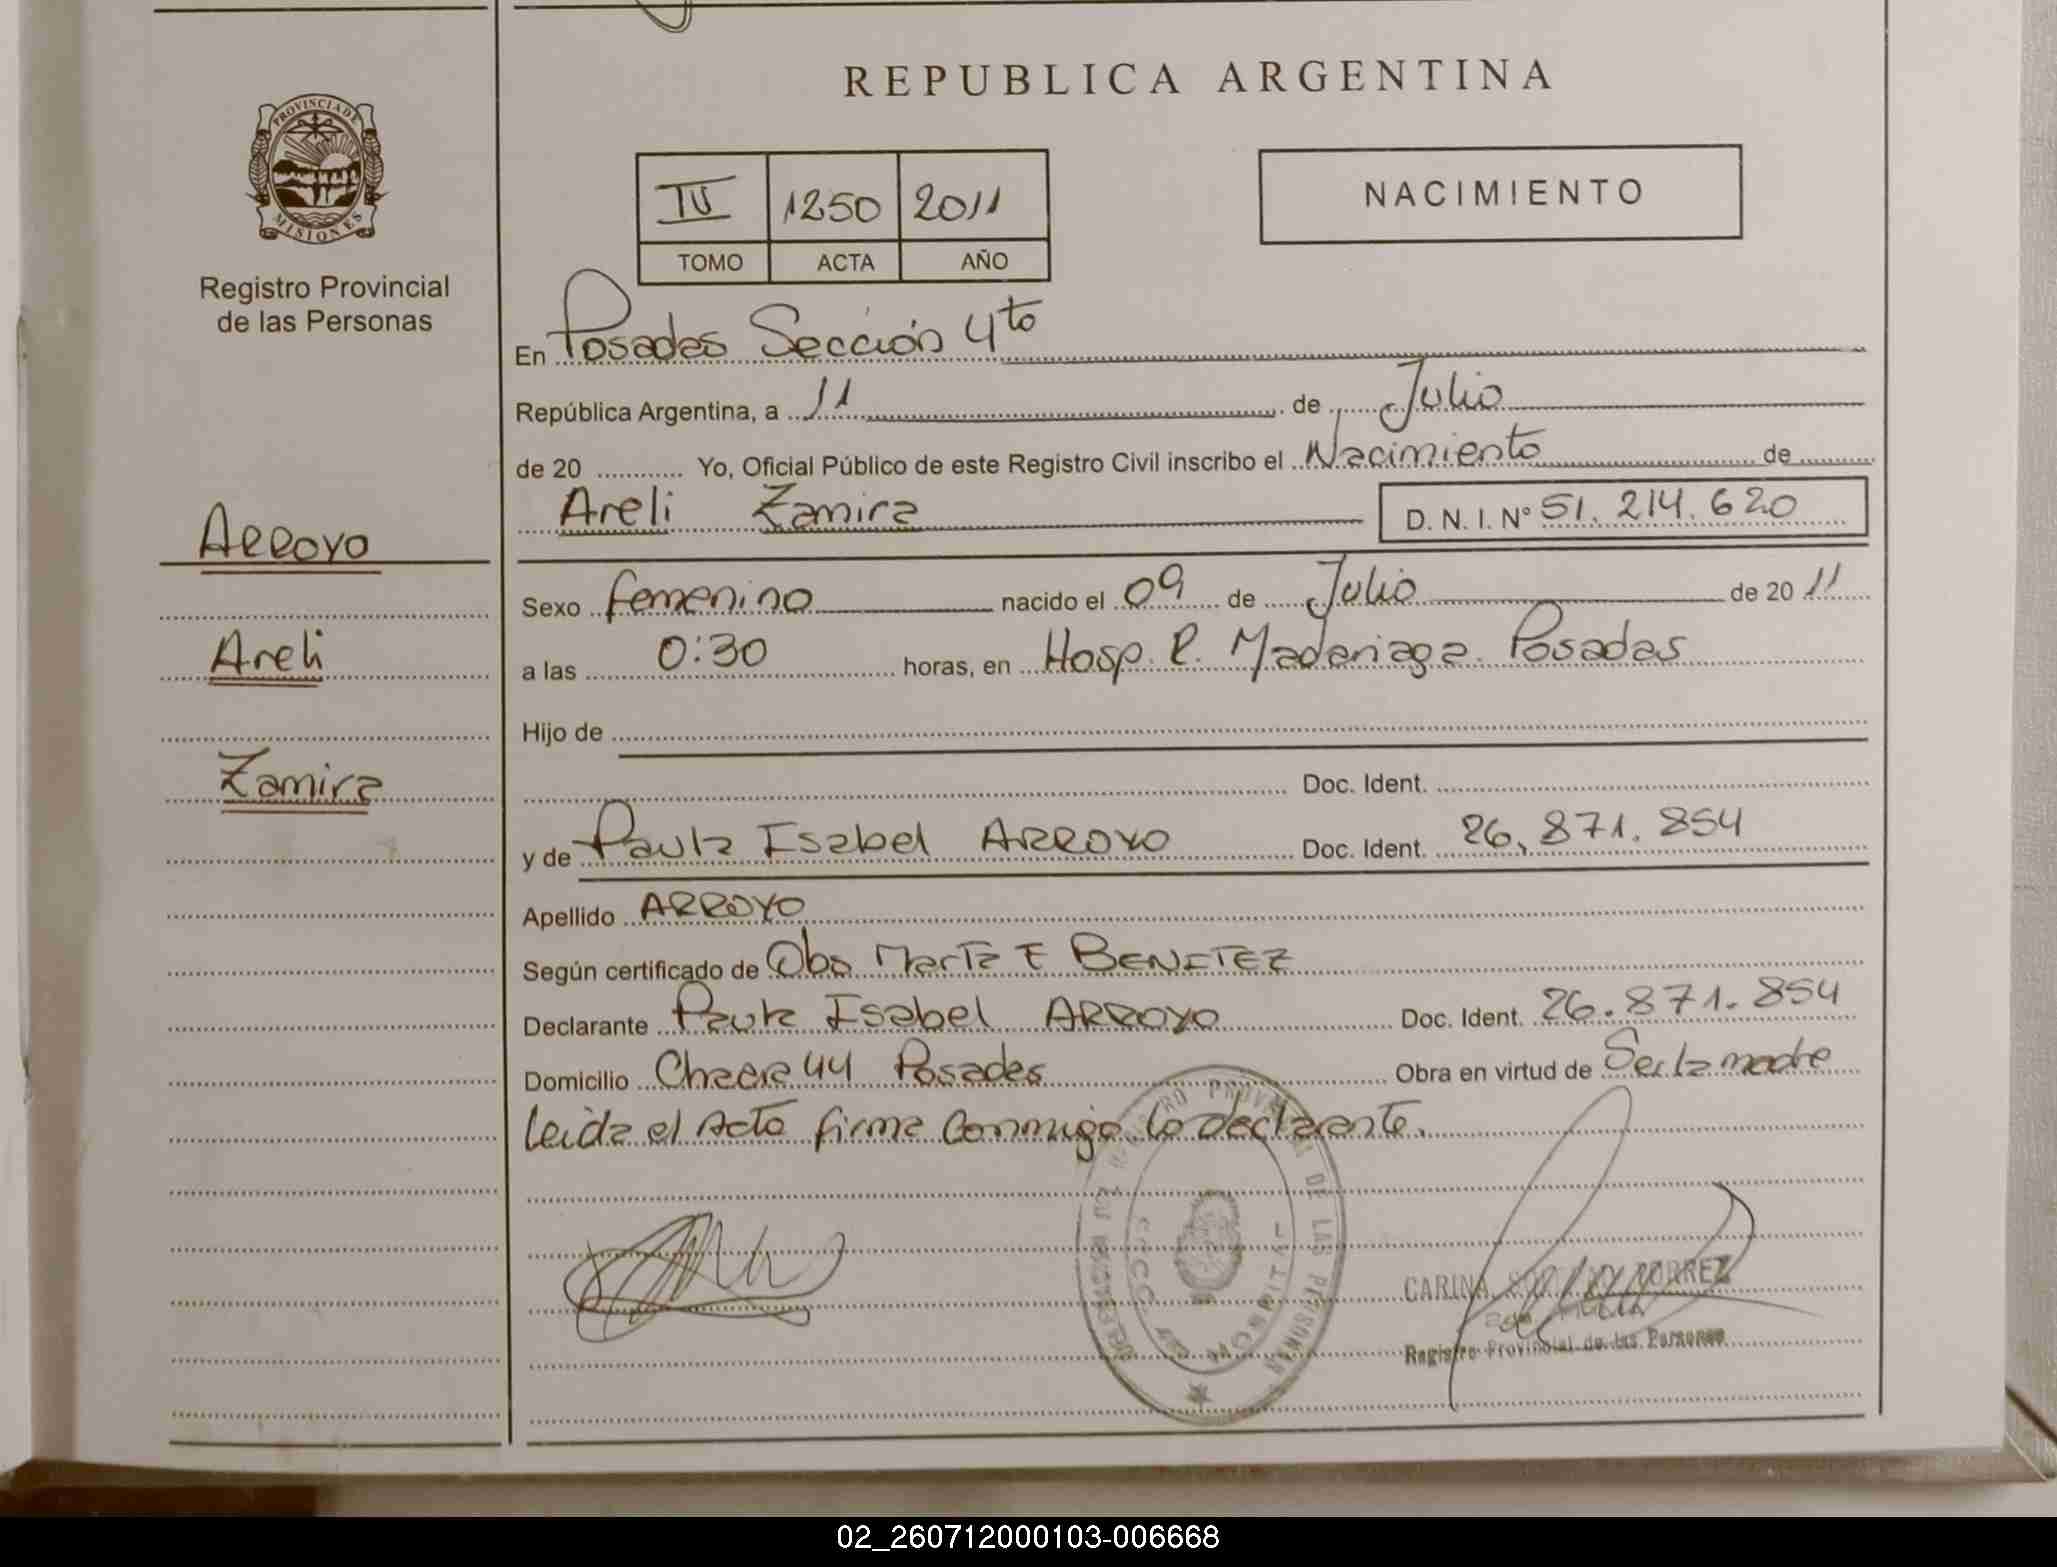 PROVINCIA DE
MISIONES
Registro Provincial
de las Personas
Arroyo
Areli
Zamira
REPUBLICA ARGENTINA
IV 1250 2011
TOMO ACTA AÑO
NACIMIENTO
En Posadas Sección 4to
República Argentina, a 11 de Julio
de 20 Yo, Oficial Público de este Registro Civil inscribo el Nacimiento de
Areli Zamira D. N. I. Nº 51.214.620
Sexo femenino nacido el 09 de Julio de 20 11
a las 0:30 horas, en Hosp. R. Madariaga. Posadas
Hijo de
Doc. Ident.
y de Paula Isabel ARROYO Doc. Ident. 26.871.854
Apellido ARROYO
Según certificado de Obs Marta E BENITEZ
Declarante Paula Isabel ARROYO Doc. Ident. 26.871.854
Domicilio Chacra 44 Posadas Obra en virtud de Ser la madre
leida el Acta firma conmigo la declarante.
REGISTRO PROVINCIAL DE LAS PERSONAS
CARINA TORREZ
Registro Provincial de las Personas
02_260712000103-006668